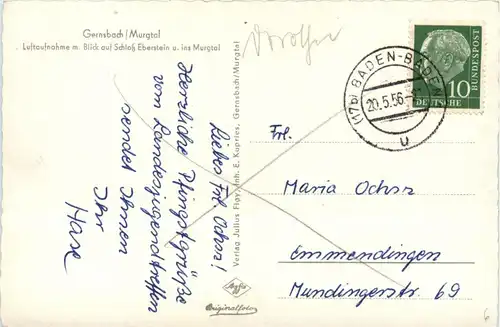 Gernsbach/Murgtal
Luftaufnahme m. Blick auf Schloß Eberstein u. ins Murgtal
Liebes Frl. Ochsr!
Herzliche Pfingstgrüße
vom Landesjugendtreffen
sendet Ihnen
Ihr
Hase
Verlag Julius Flay, Inh. E. Kupries, Gernsbach/Murgtal
Agfa
Originalfoto
(17b) BADEN-BADEN
20.5.56
u
10
DEUTSCHE
BUNDESPOST
Frl.
Maria Ochsr
Emmendingen
Mundingerstr. 69
6